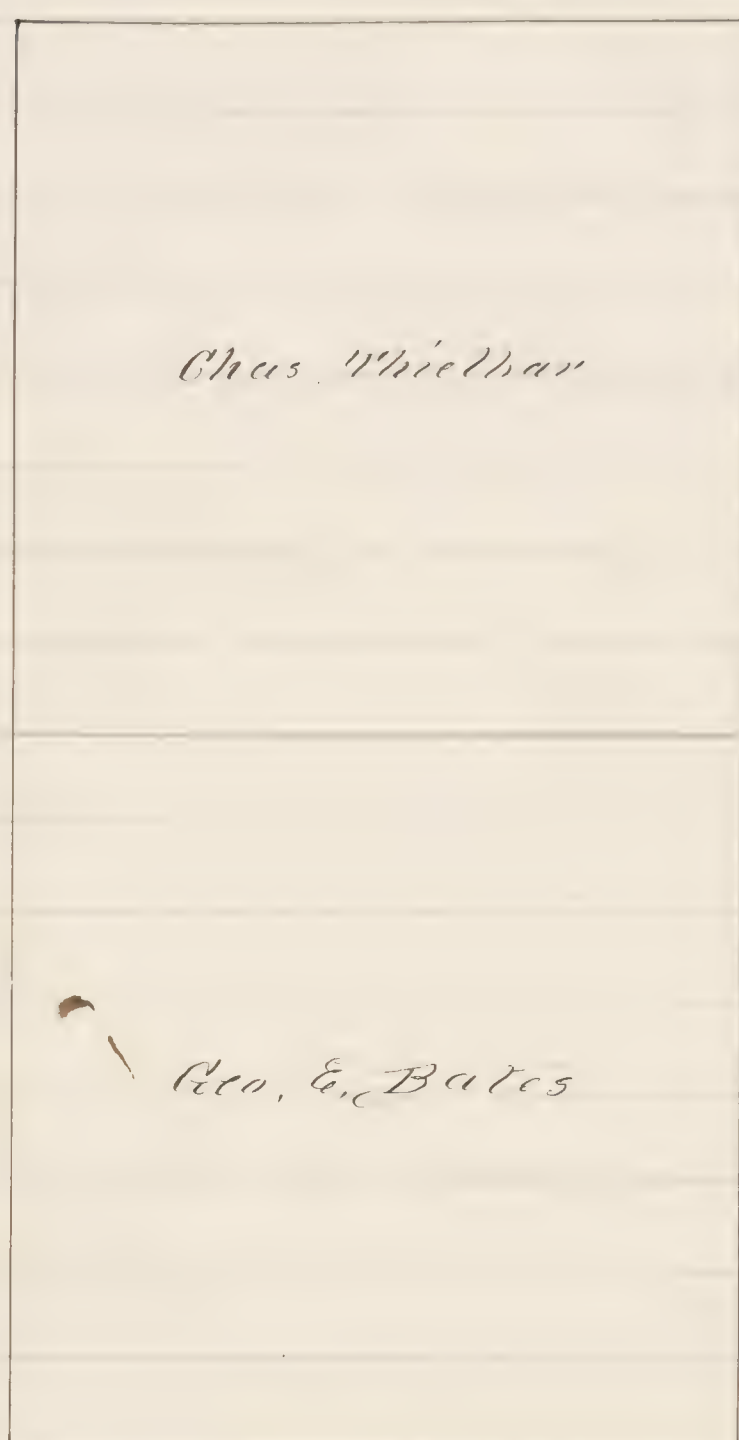 Chas. Thielbar
Geo. E. Bates